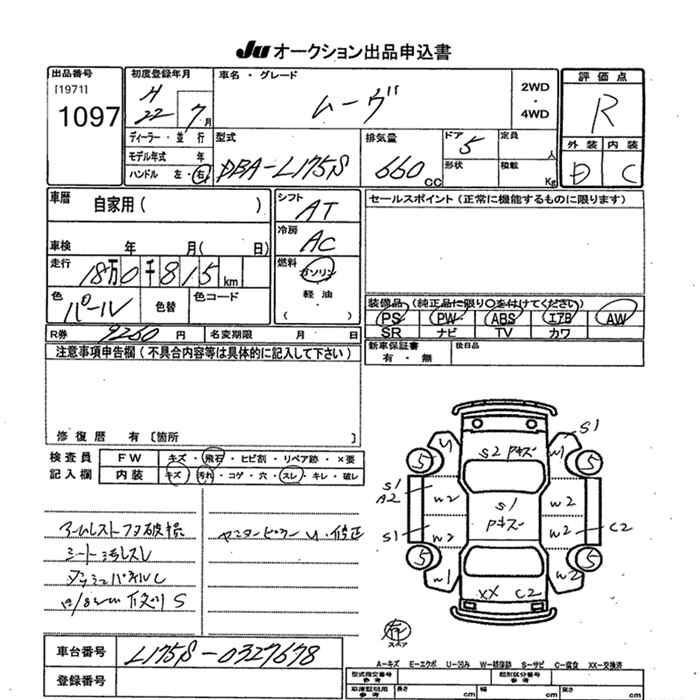 Ju オークション出品申込書
出品番号 初度登録年月 車名・グレード 評価点
[1971] H 22 7月 ムーヴ 2WD・4WD R
1097
ディーラー・並行 型式 排気量 ドア 定員 外装 内装
モデル年式 年 DBA-L175S 660cc 5 人 D C
ハンドル 左・右 形状 積載 Kg
車歴 自家用( ) シフト AT セールスポイント(正常に機能するものに限ります)
冷房 AC
車検 年 月( 日)
走行 18万0千815km 燃料 ガソリン
軽油
( )
色 パール 色替 色コード 装備品(純正品に限り○を付けてください)
PS PW ABS エアB AW
SR ナビ TV カワ
R券 9260円 名変期限 月 日
新車保証書 有・無 後日品
注意事項申告欄(不具合内容等は具体的に記入して下さい)
修復歴 有〔箇所 〕
検査員 FW キズ・飛石・ヒビ割・リペア跡・×要
記入欄 内装 キズ・汚れ・コゲ・穴・スレ・キレ・破レ
アームレストフタ破損
シート汚レスレ
センターピラー U・修正
S1
U W1
S2 Pキズ
5 5
S1
A2 W2 W2
S1
Pキズ
S1 W2 W2 C2
5 5
W1 W2
XX C2
有
スペア
A-キズ E-エクボ U-凹み W-補修跡 S-サビ C-腐食 XX-交換済
車台番号 L175S-0327678
登録番号
型式指定番号 参考 類別区分番号 参考
長さ cm 幅 cm 高さ cm